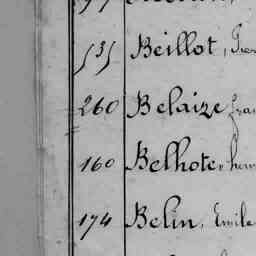 535 Beillot,
260 Belaize
160 Belhote,
174 Belin, Emile